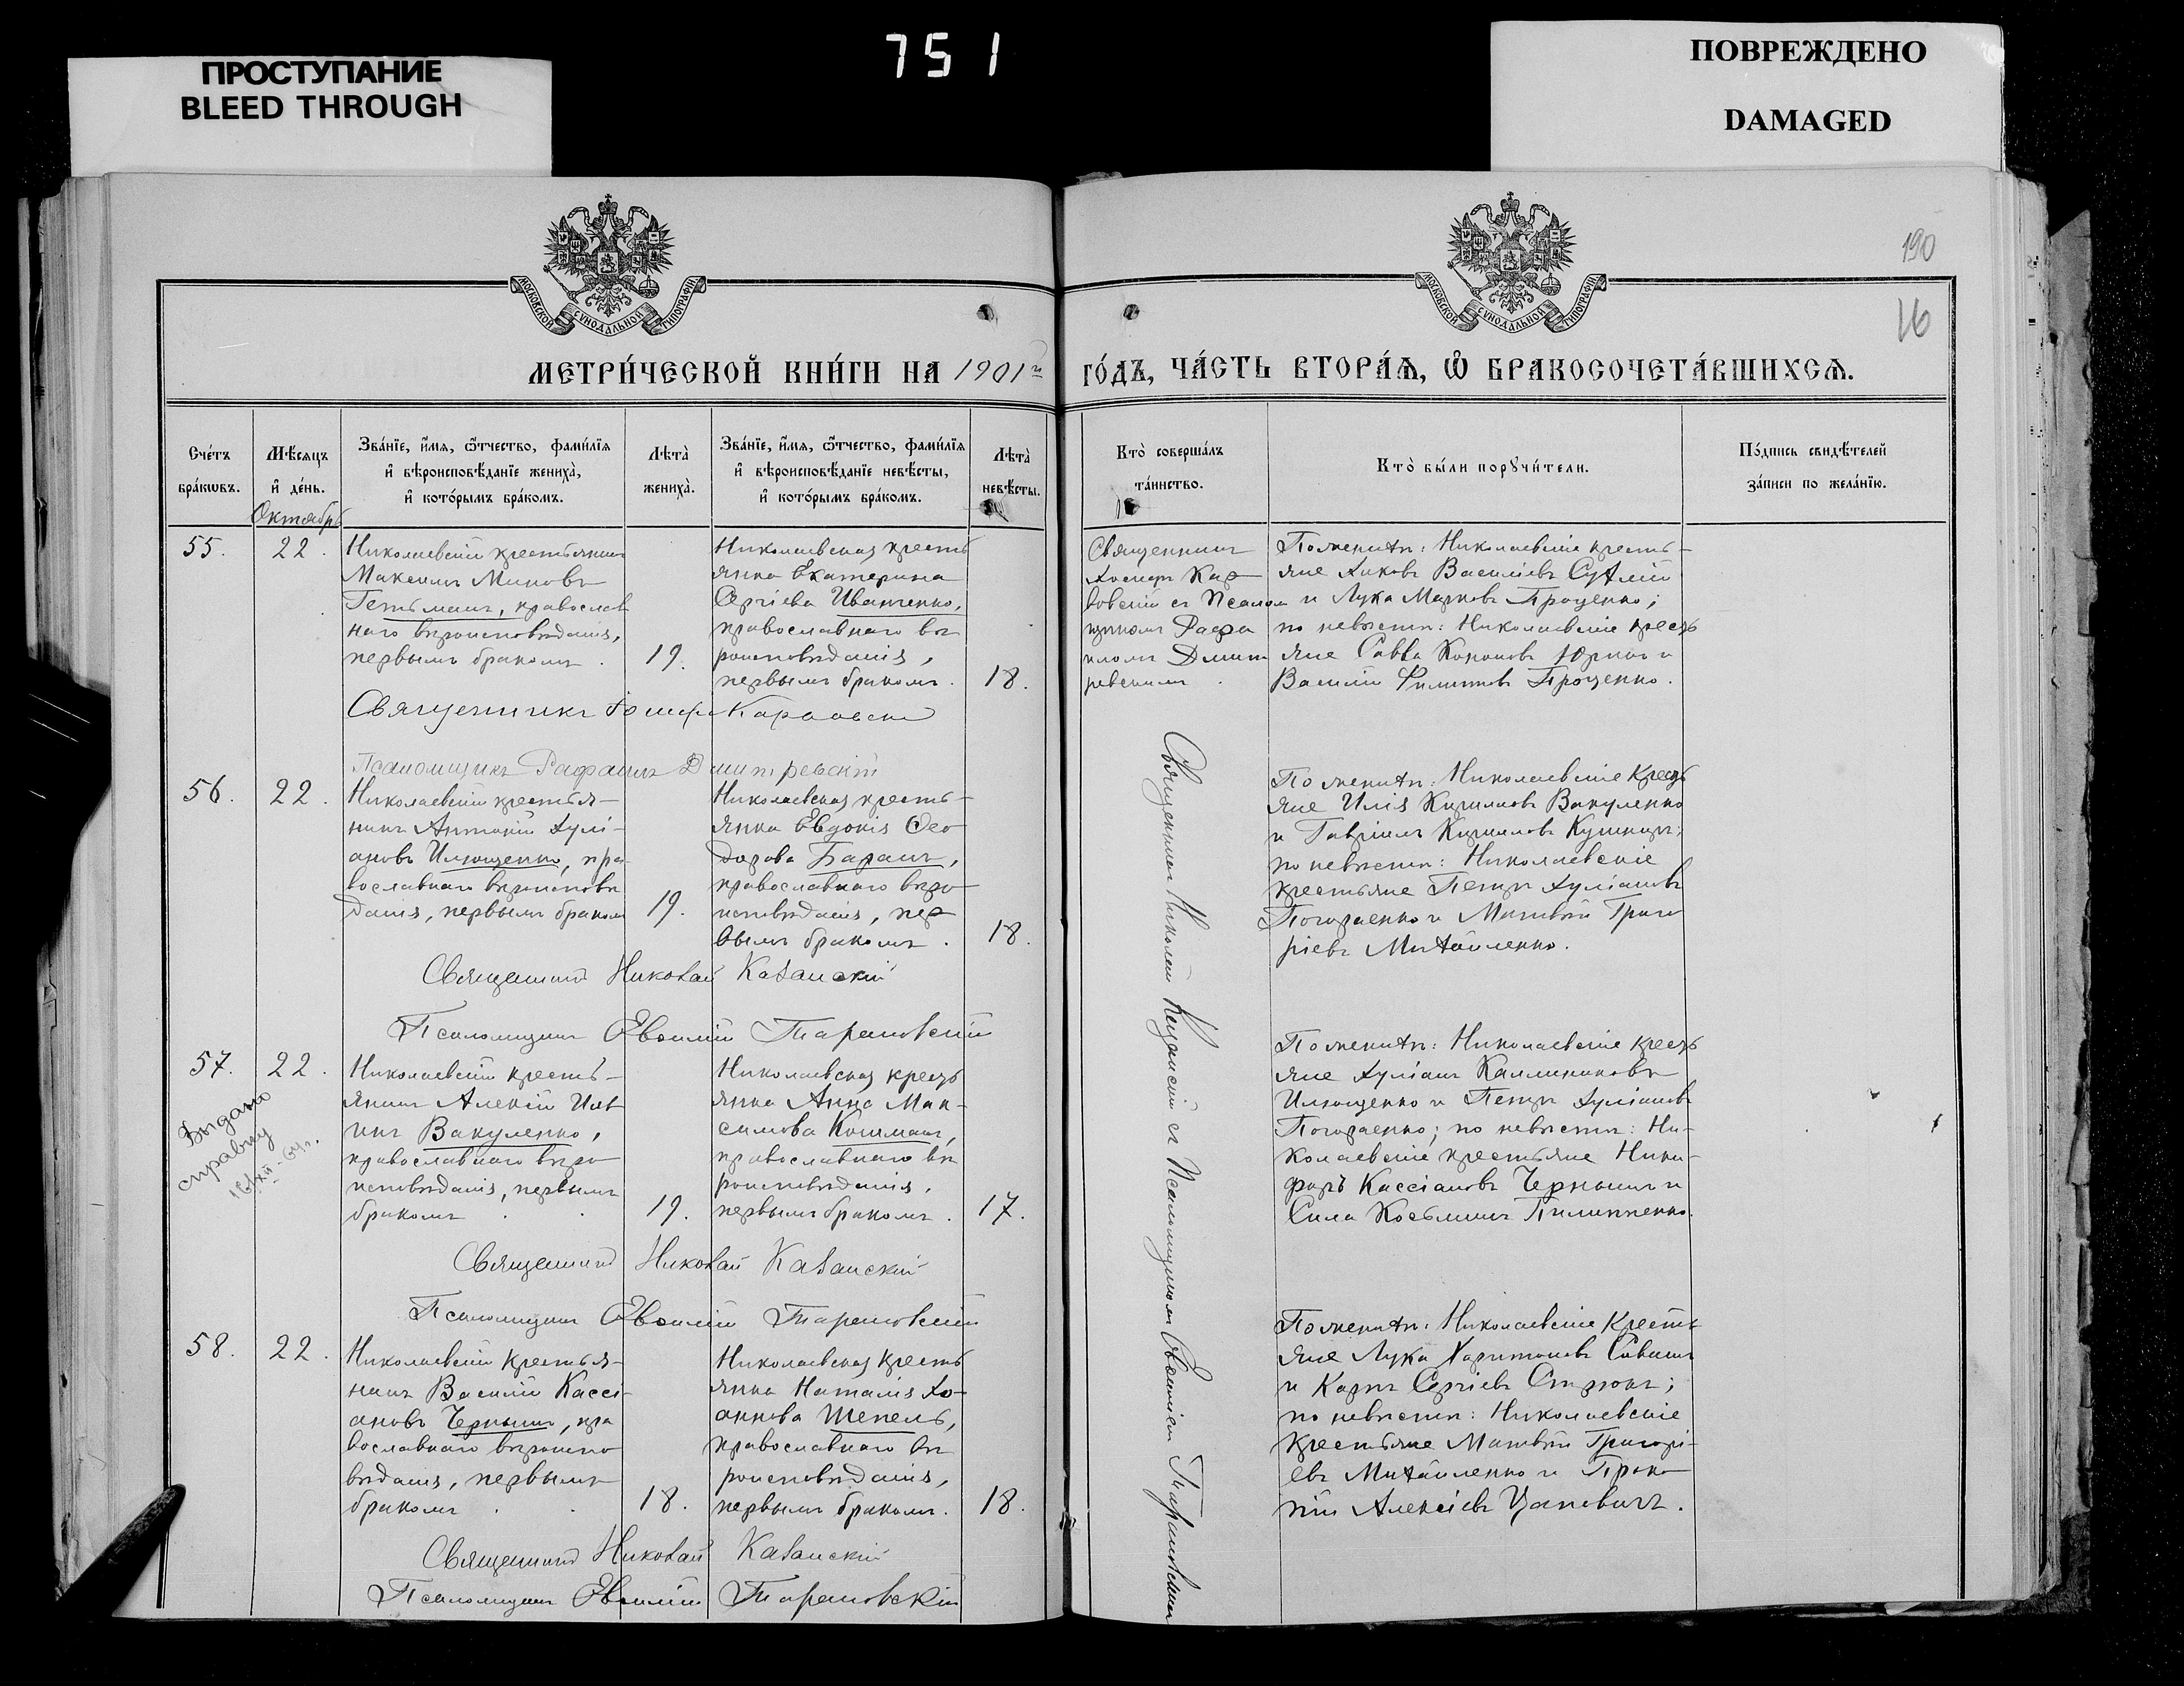 751
ПРОСТУПАНИЕ
BLEED THROUGH
ПОВРЕЖДЕНО
DAMAGED
190
16
МОСКОВСКОЙ СѴНОДАЛЬНОЙ ТИПОГРАФІИ
МОСКОВСКОЙ СѴНОДАЛЬНОЙ ТИПОГРАФІИ
МЕТРИ́ЧЕСКОЙ КНИ́ГИ НА 1901й
ГО́ДЪ, ЧА́СТЬ ВТОРА́Ѧ, Ѽ БРАКОСОЧЕТА́ВШИХСѦ.
Сче́тъ бра́кѡвъ.
Мѣ́сяцъ и҆ де́нь.
Зва́нїе, и҆́мѧ, ѻ҆́тчество, фами́лїѧ
и҆ вѣроисповѣ́данїе жениха̀,
и҆ кото́рымъ бра́комъ.
Лѣта̀ жениха̀.
Зва́нїе, и҆́мѧ, ѻ҆́тчество, фами́лїѧ
и҆ вѣроисповѣ́данїе невѣ́сты,
и҆ кото́рымъ бра́комъ.
Лѣта̀ невѣ́сты.
Кто̀ соверша́лъ та́инство.
Кто̀ бы́ли порꙋчи́тели.
По́дпись свидѣ́телей за́писи по жела́нїю.
Октябрь
55.
22.
Николаевскій крестьянинъ
Максимъ Миновъ
Гетьманъ, православ
наго вѣроисповѣданія,
первымъ бракомъ.
19.
Николаевская кресть
янка Екатерина
Сергіева Иванченко,
православнаго вѣ
роисповѣданія,
первымъ бракомъ.
18.
Священникъ
Іосифъ Кар
вовскій съ Псалом
щикомъ Рафа
иломъ Димит
ревскимъ.
По женихѣ: Николаевскіе кресть-
яне Іаковъ Василіевъ
и Лука Марковъ Проценко;
по невѣстѣ: Николаевскіе крестъ
яне Савва Кононовъ и
Василій Филиповъ Проценко.
Священникъ Іосифъ
Псаломщикъ Рафаилъ Димитревскій
56.
22.
Николаевскій крестья-
нинъ Антоній Іулі-
ановъ Илющенко, пра-
вославнаго вѣроисповѣ
данія, первымъ бракомъ
19.
Николаевская кресть-
янка Евдокія Ѳео-
дорова Баранъ,
православнаго вѣро-
исповѣданія, пер-
вымъ бракомъ.
18.
По женихѣ: Николаевскіе крестъ
яне Илія Кириловъ Вакуленко
и Гавріилъ Кириловъ Кушниръ;
по невѣстѣ: Николаевскіе
крестьяне Петръ Іуліановъ
Погораенко и Матвѣй Григо
ріевъ Михайленко.
Священникъ Николай Казанскій
Псаломщикъ Евѳимій Тарановскій
57.
22.
Выдано
справку
Николаевскій кресть-
янинъ Алексій Иль
инъ Вакуленко,
православнаго вѣро-
исповѣданія, первымъ
бракомъ
19.
Николаевская крестъ
янка Анна Мак-
симова Кошманъ,
православнаго вѣ
роисповѣданія,
первымъ бракомъ.
17.
По женихѣ: Николаевскіе крестъ
яне Іуліанъ Каллиниковъ
Илющенко и Петръ Іуліановъ
Погораенко; по невѣстѣ: Ни-
колаевскіе крестьяне Ники-
форъ Кассіановъ Чернышъ и
Сила Косьминъ Пилипченко.
Священникъ Николай Казанскій
Псаломщикъ Евѳимій Тарановскій
58.
22.
Николаевскій крестья-
нинъ Василій Кассі-
ановъ Чернышъ, пра
вославнаго вѣроиспо
вѣданія, первымъ
бракомъ
18.
Николаевская кресть
янка Наталія Іо-
аннова Шепель,
православнаго вѣ
роисповѣданія,
первымъ бракомъ.
18.
По женихѣ: Николаевскіе кресть
яне Лука Харитоновъ Савинъ
и Карпъ Сергіевъ;
по невѣстѣ: Николаевскіе
крестьяне Матвѣй Григорі-
евъ Михайленко и Проко
пій Алексіевъ Цапович.
Священникъ Николай Казанскій
Псаломщикъ Евѳимій Тарановскій
Священникъ Николай Казанскій съ Псаломщикомъ Евѳиміемъ Тарановскимъ